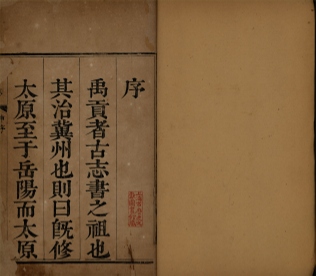 序
禹貢者古志書之祖也
其治冀州也則曰旣修
太原至于岳陽而太原